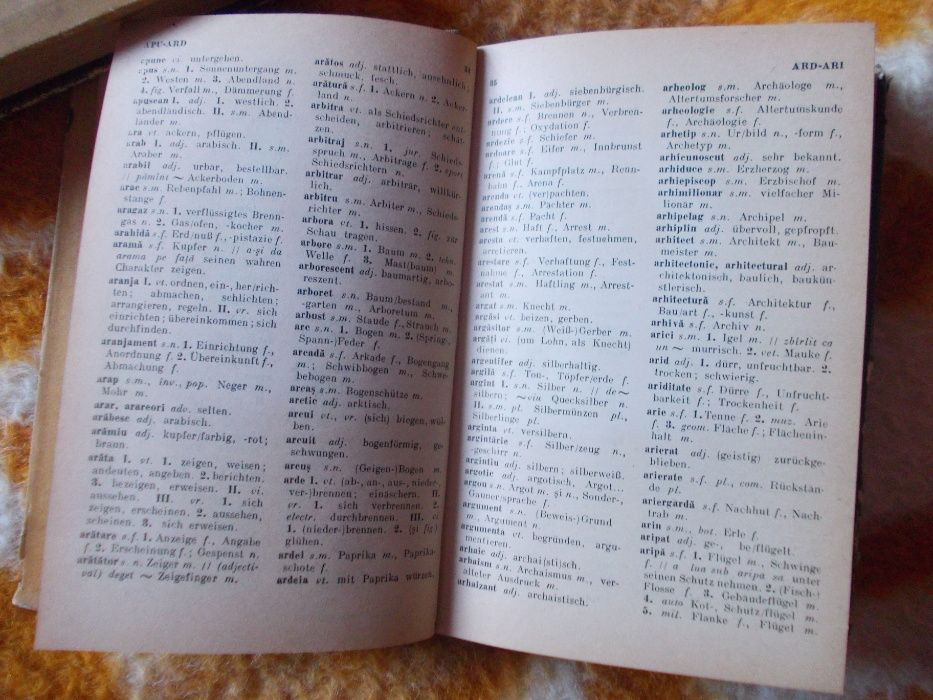 APU-ARD
34
apune vi. untergehen.
apus s.n. 1. Sonnenuntergang m.
2. Westen m. 3. Abendland n.
4. fig. Verfall m., Dämmerung f.
apusean I. adj. 1. westlich. 2.
abendländisch. II. s.m. Abend-
länder m.
ara vt. ackern, pflügen.
arab I. adj. arabisch. II. s.m.
Araber m.
arabil adj. urbar, bestellbar.
// pămînt ~ Ackerboden m.
arac s.m. Rebenpfahl m.; Bohnen-
stange f.
aragaz s.n. 1. verflüssigtes Brenn-
gas n. 2. Gas/ofen, -kocher m.
arahidă s.f. Erd/nuß f., -pistazie f.
aramă s.f. Kupfer n. // a-și da
arama pe față seinen wahren
Charakter zeigen.
aranja I. vt. ordnen, ein-, her/rich-
ten; abmachen, schlichten;
arrangieren, regeln. II. vr. sich
einrichten; übereinkommen; sich
durchfinden.
aranjament s.n. 1. Einrichtung f.,
Anordnung f. 2. Übereinkunft f.,
Abmachung f.
arap s.m., inv., pop. Neger m.,
Mohr m.
arar, arareori adv. selten.
arăbesc adj. arabisch.
arămiu adj. kupfer/farbig, -rot;
braun.
arăta I. vt. 1. zeigen, weisen;
andeuten, angeben. 2. berichten.
3. bezeigen, erweisen. II. vi.
aussehen. III. vr. 1. sich
zeigen, erscheinen. 2. aussehen,
scheinen. 3. sich erweisen.
arătare s.f. 1. Anzeige f., Angabe
f. 2. Erscheinung f.; Gespenst n.
arătător s.n. Zeiger m. // (adjecti-
val) deget ~ Zeigefinger m.
arătos adj. stattlich, ansehnlich,
schmuck, fesch.
arătură s.f. 1. Ackern n. 2. Acker-
land n.
arbitra vt. als Schiedsrichter ent-
scheiden, arbitrieren; schät-
zen.
arbitraj s.n. 1. jur. Schieds-
spruch m., Arbitrage f. 2. sport
Schiedsrichtern n.
arbitrar adj. arbiträr, willkür-
lich.
arbitru s.m. Arbiter m., Schieds-
richter m.
arbora vt. 1. hissen. 2. fig. zur
Schau tragen.
arbore s.m. 1. Baum m. 2. tehn.
Welle f. 3. Mast(baum) m.
arborescent adj. baumartig, arbo-
reszent.
arboret s.n. Baum/bestand m.,
-garten m., Arboretum m.
arbust s.m. Staude f., Strauch m.
arc s.n. 1. Bogen m. 2. (Spring-,
Spann-)Feder f.
arcadă s.f. Arkade f., Bogengang
m.; Schwibbogen m., Schwe-
bebogen m.
arcaș s.m. Bogenschütze m.
arctic adj. arktisch.
arcui vt., vr. (sich) biegen, wöl-
ben.
arcuit adj. bogenförmig, ge-
schwungen.
arcuș s.n. (Geigen-)Bogen m.
arde I. vt. (ab-, an-, aus-, nieder-,
ver-)brennen; einäschern. II.
vr. 1. sich verbrennen. 2.
electr. durchbrennen. III. vi.
1. (nieder-)brennen. 2. (și fig.)
glühen.
ardei s.m. Paprika m., Paprika-
schote f.
ardeia vt. mit Paprika würzen.
35
ARD-ARI
ardelean I. adj. siebenbürgisch.
II. s.m. Siebenbürger m.
ardere s.f. Brennen n., Verbren-
nung f.; Oxydation f.
ardezie s.f. Schiefer m.
ardoare s.f. Eifer m., Innbrunst
f.; Glut f.
arenă s.f. Kampfplatz m., Renn-
bahn f., Arena f.
arenda vt. (ver)pachten.
arendaș s.m. Pächter m.
arendă s.f. Pacht f.
arest s.n. Haft f., Arrest m.
aresta vt. verhaften, festnehmen,
arretieren.
arestare s.f. Verhaftung f., Fest-
nahme f., Arrestation f.
arestat s.m. Häftling m., Arrest-
ant m.
argat s.m. Knecht m.
argăsi vt. beizen, gerben.
argăsitor s.m. (Weiß-)Gerber m.
argăți vi. (um Lohn, als Knecht)
dienen.
argentifer adj. silberhaltig.
argilă s.f. Ton-, Töpfer/erde f.
argint I. s.n. Silber n. // de~
silbern; ~viu Quecksilber n.
II. s.m. pl. Silbermünzen pl.,
Silberlinge pl.
arginta vt. versilbern.
argintărie s.f. Silber/zeug n.,
-geschirr n.
argintiu adj. silbern; silberweiß.
argotic adj. argotisch, Argot...
argou s.n. Argot m. și n., Sonder-,
Gauner/sprache f.
argument s.n. (Beweis-)Grund
m., Argument n.
argumenta vt. begründen, argu-
mentieren.
arhaic adj. archai(sti)sch.
arhaism s.n. Archaismus m., ver-
alteter Ausdruck m.
arhaizant adj. archaistisch.
arheolog s.m. Archäologe m.,
Altertumsforscher m.
arheologie s.f. Altertumskunde
f., Archäologie f.
arhetip s.n. Ur/bild n., -form f.,
Archetyp m.
arhicunoscut adj. sehr bekannt.
arhiduce s.m. Erzherzog m.
arhiepiscop s.m. Erzbischof m.
arhimilionar s.m. vielfacher Mil-
lionär m.
arhipelag s.n. Archipel m.
arhiplin adj. übervoll, gepfropft.
arhitect s.m. Architekt m., Bau-
meister m.
arhitectonic, arhitectural adj. ar-
chitektonisch, baulich, baukün-
stlerisch.
arhitectură s.f. Architektur f.,
Bau/art f., -kunst f.
arhivă s.f. Archiv n.
arici s.m. 1. Igel m. // zbîrlit ca
un ~ murrisch. 2. vet. Mauke f.
arid adj. 1. dürr, unfruchtbar. 2.
trocken; schwierig.
ariditate s.f. Dürre f., Unfrucht-
barkeit f.; Trockenheit f.
arie s.f. 1. Tenne f. 2. muz. Arie
f. 3. geom. Fläche f.; Flächenin-
halt m.
arierat adj. (geistig) zurückge-
blieben.
arierate s.f. pl., com. Rückstän-
de pl.
ariergardă s.f. Nachhut f., Nach-
trab m.
arin s.m., bot. Erle f.
aripat adj. ge-, be/flügelt.
aripă s.f. 1. Flügel m., Schwinge
f. // a lua sub aripa sa unter
seinen Schutz nehmen. 2. (Fisch-)
Flosse f. 3. Gebäudeflügel m.
4. auto Kot-, Schutz/flügel m.
5. mil. Flanke f., Flügel m.